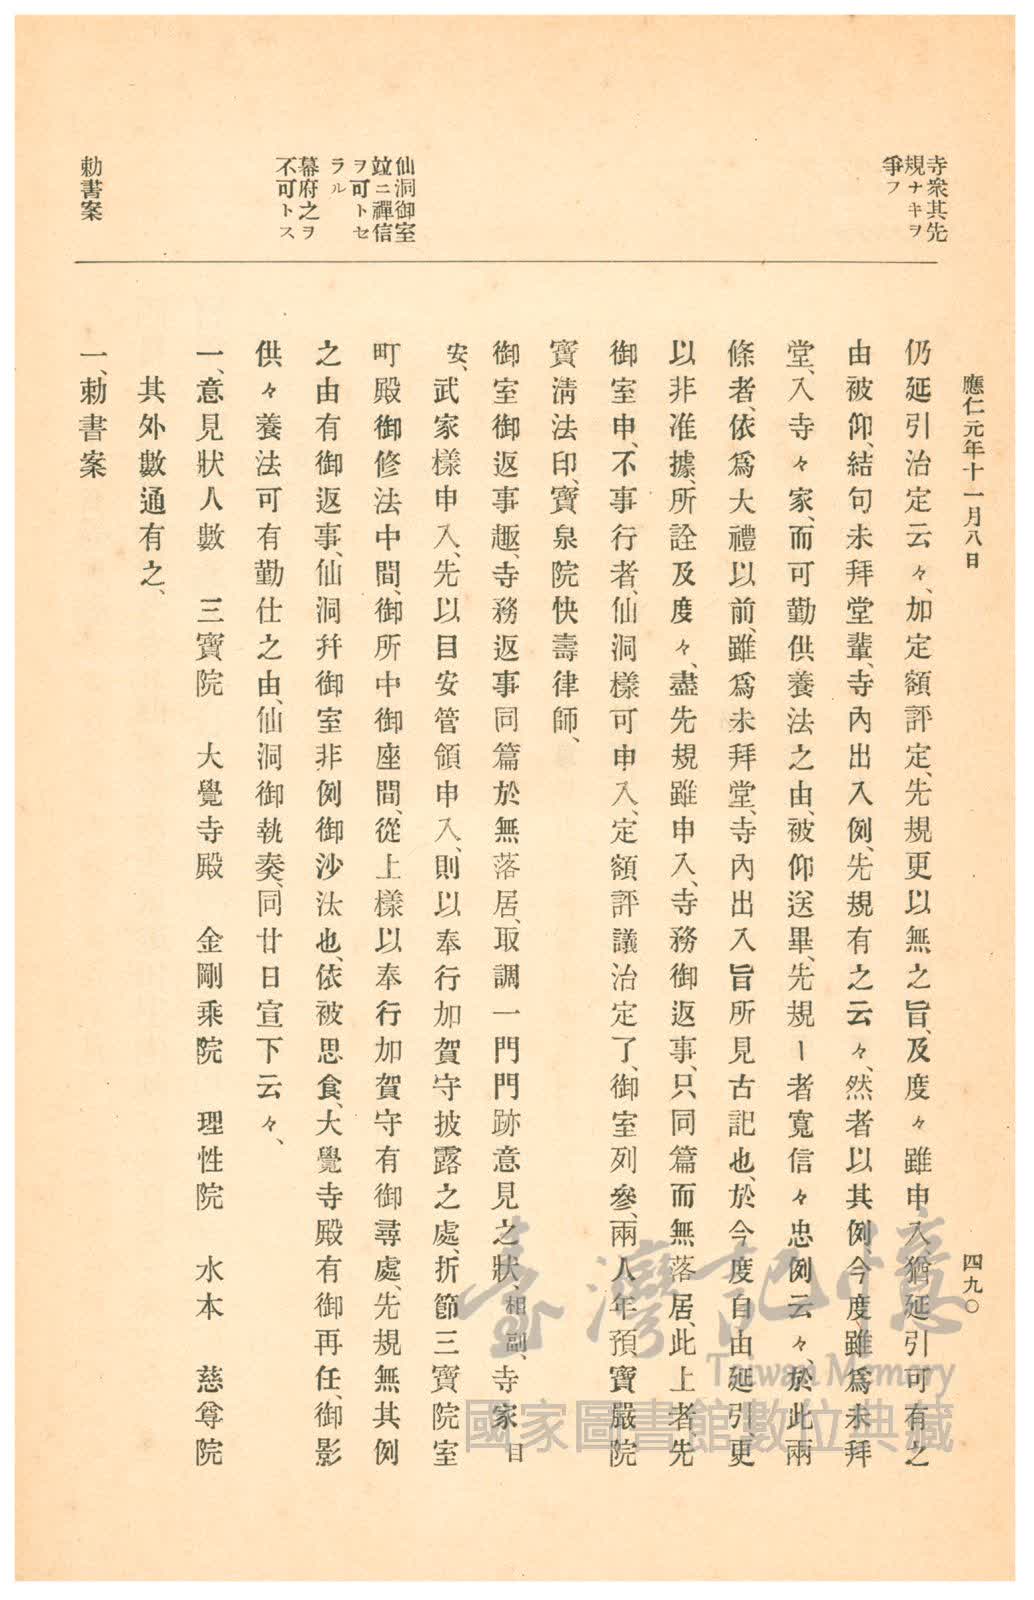 應仁元年十一月八日
四九〇
寺衆其先
規ナキヲ
爭フ
仙洞御室
竝ニ禪信
ヲ可トセ
ラル
幕府之ヲ
不可トス
勅書案
仍延引治定云々、加定額評定、先規更以無之旨、及度々雖申入、猶延引可有之
由被仰、結句未拜堂輩、寺內出入例、先規有之云々、然者以其例、今度雖爲未拜
堂、入寺々家、而可勤供養法之由、被仰送畢、先規ー者寬信々忠例云々、於此兩
條者、依爲大禮以前、雖爲未拜堂、寺內出入旨所見古記也、於今度自由延引、更
以非准據、所詮及度々、盡先規雖申入、寺務御返事、只同篇而無落居、此上者、先
御室申、不事行者、仙洞樣可申入、定額評議治定了、御室列參、兩人年預寶嚴院
寶淸法印、寶泉院快壽律師、
御室御返事趣、寺務返事同篇於無落居、取調一門門跡意見之狀、相副、寺家目
安、武家樣申入、先以目安管領申入、則以奉行加賀守披露之處、折節三寶院室
町殿御修法中間、御所中御座間、從上樣以奉行加賀守有御尋處、先規無其例
之由有御返事、仙洞幷御室非例御沙汰也、依被思食、大覺寺殿有御再任、御影
供々養法可有勤仕之由、仙洞御執奏、同廿日宣下云々、
一、意見狀人數　三寶院　大覺寺殿　金剛乘院　理性院　水本　慈尊院
其外數通有之、
一、勅書案
臺灣記憶
Taiwan Memory
國家圖書館數位典藏